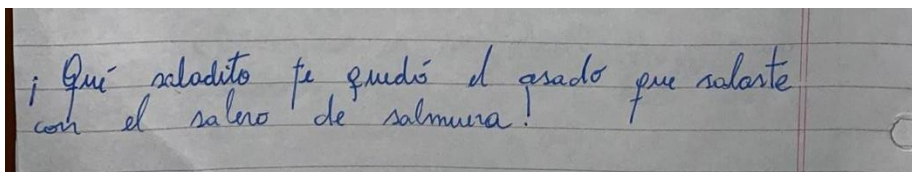 ¡Qué saladito te quedó el asado que salaste
con el salero de salmuera!